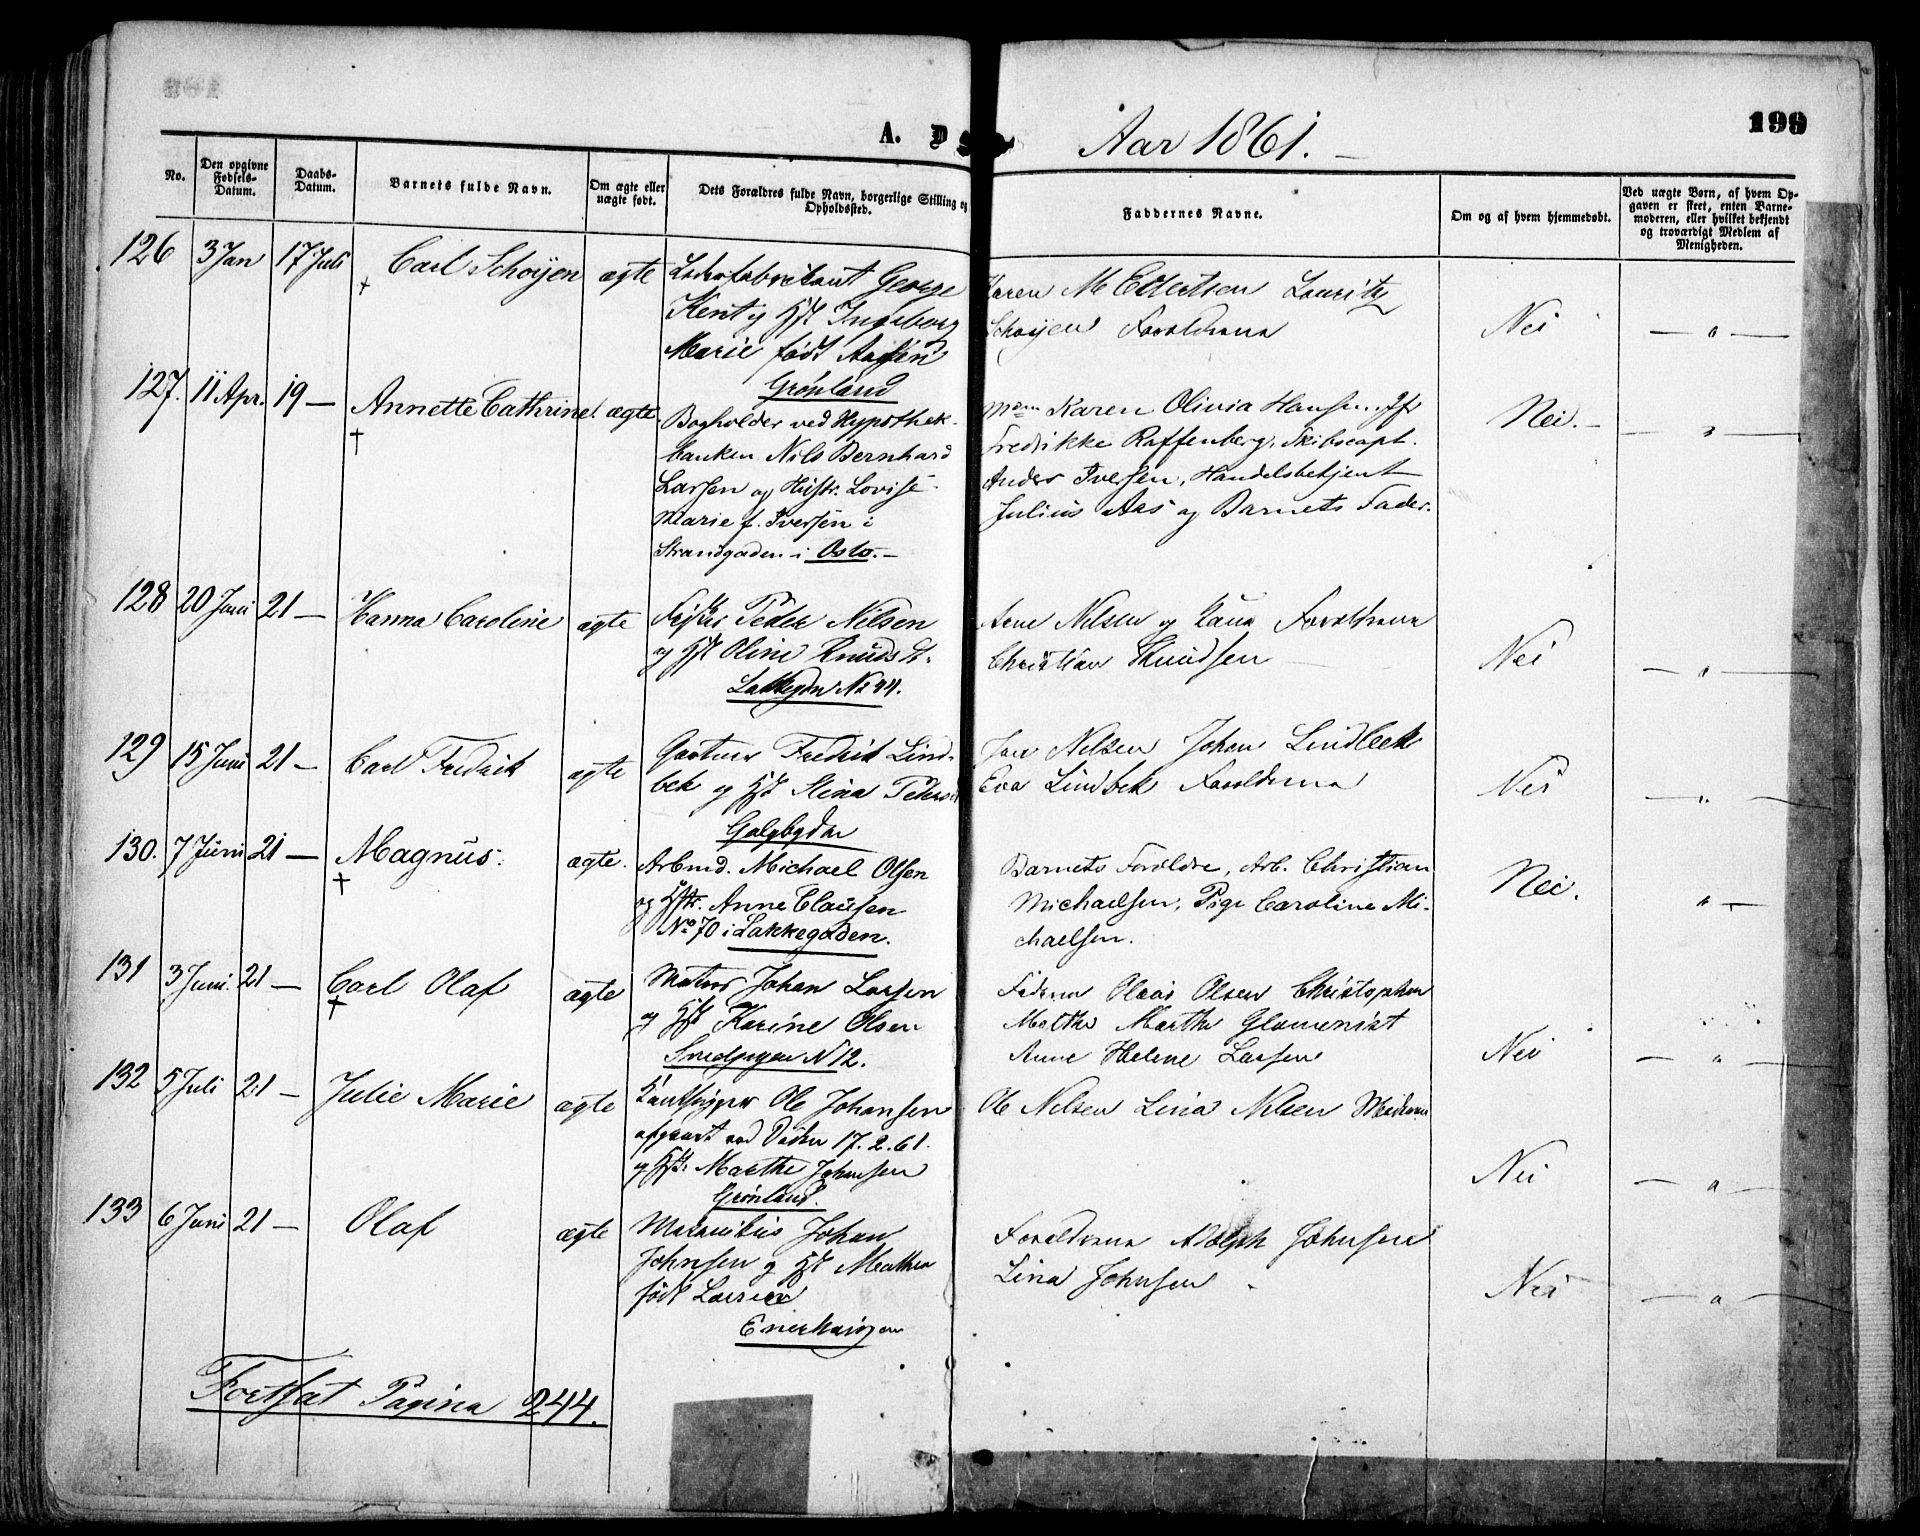 A. D
Aar 1861.
199
No.
Den opgivne Fødsels-Datum.
Daabs-Datum.
Barnets fulde Navn.
Om ægte eller uægte født.
Dets Forældres fulde Navn, borgerlige Stilling og Opholdssted.
Faddernes Navne.
Om og af hvem hjemmedøbt.
Ved uægte Børn, af hvem Opgaven er skeet, enten Barnemoderen, eller hvilket bekjendt og troværdigt Medlem af Menigheden.
126 3 Jan 17 Juli Carl Schøyen ægte
Læderfabrikant George
Kent og Hst Ingeborg
Marie født Aasen
Grønland
Karen M Ellertsen Lauritz
Schøyen Forældrene
Nei
127. 11 Apr. 19 — Annette Cathrine ægte
Bogholder ved Hypothek-
banken Nils Bernhard
Larsen og Hustr. Lovise
Marie f. Iversen i
Strandgaden i Oslo. —
Mom Karen Olivia Hansen, Jfr
Fredrikke Raffenberg, Skibscapt.
Anders Iversen, Handelsbetjent
Julius Aas og Barnets Fader.
Nei. —
128 20 Juni 21 — Hanna Caroline ægte
Peder Nilsen
og Hst Oline Knuds d.
Lakkegdn No 44.
Arne Nilsen og Forældrene
Christian Knudsen
Nei
129 15 Juni 21 — Carl Fredrik ægte
Gartner Fredrik Lind-
bek og Hst Stina Peters
Galgbgden
Jan Nilsen Johan Lindbek
Eva Lindbek Forældrene
Nei
130. 7 Juni 21 — Magnus. ægte.
Arbmd. Michael Olsen
og Hstr. Anne Clausen
No 70 i Lakkegaden.
Barnets Forældre, Arb. Christian
Michaelsen, Pige Caroline Mi-
chaelsen.
Nei.
131 3 Juni. 21 — Carl Olaf ægte
Johan Larsen
og Hst Karine Olsen
N 12.
Faderen Olaus Olsen Christopher
Marthe
Anne Helene Larsen
Nei
132 5 Juli 21 — Julie Marie ægte
Ole Johansen
afgaaet ved Døden 17. 2. 61.
og Hst. Marthe Johansen
Grønland.
Ole Nilsen Lina Nilsen Moderen
Nei
133 6 Juni 21 — Olaf ægte
Johan
Johnsen og Hst Mathea
født Larsen
Enerhaugen
Forældrene Adolph Johnsen
Lina Johnsen
Nei
Fortsat Pagina 244.